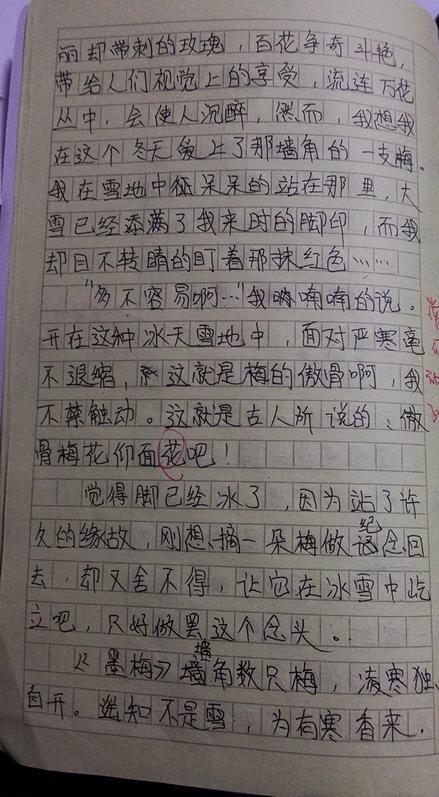 丽却带刺的玫瑰，百花争奇斗艳，
带给人们视觉上的享受，流连万花
丛中，会使人沉醉，然而，我想我
在这个冬天爱上了那墙角的一支梅。
我在雪地中征呆呆的站在那里，大
雪已经添满了我来时的脚印，而我
却目不转睛的盯着那抹红色……
“多不容易啊…”我喃喃的说。
开在这种冰天雪地中，面对严寒毫
不退缩，这就是梅的傲骨啊，我
不禁触动。这就是古人所说的、傲
骨梅花仰面花吧！
觉得脚已经冰了，因为站了许
久的缘故，刚想摘一朵梅做纪念回
去，却又舍不得，让它在冰雪中屹
立吧，只好做罢这个念头。
《墨梅》墙角数只梅，凌寒独
自开。遥知不是雪，为有寒香来.